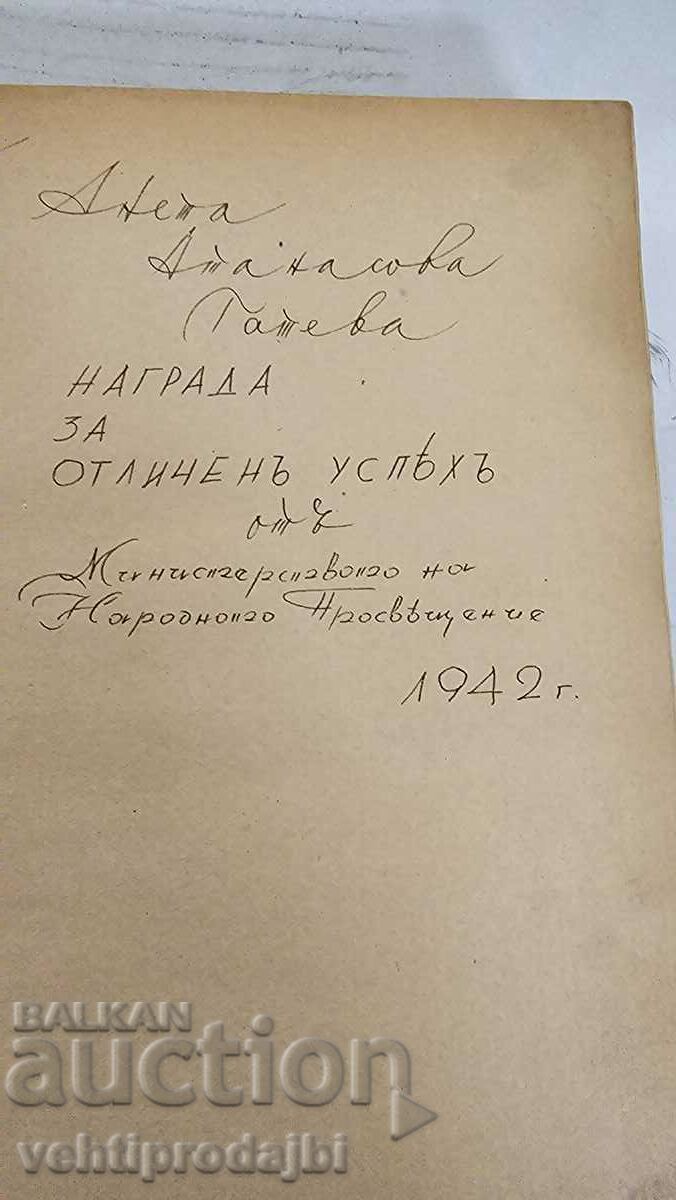 Анета
Атанасова
Гатева
НАГРАДА
ЗА
ОТЛИЧЕНЪ УСПѢХЪ
отъ
Министерството на
Народното Просвѣщение
1942 г.
BALKAN
auction
vehtiprodajbi